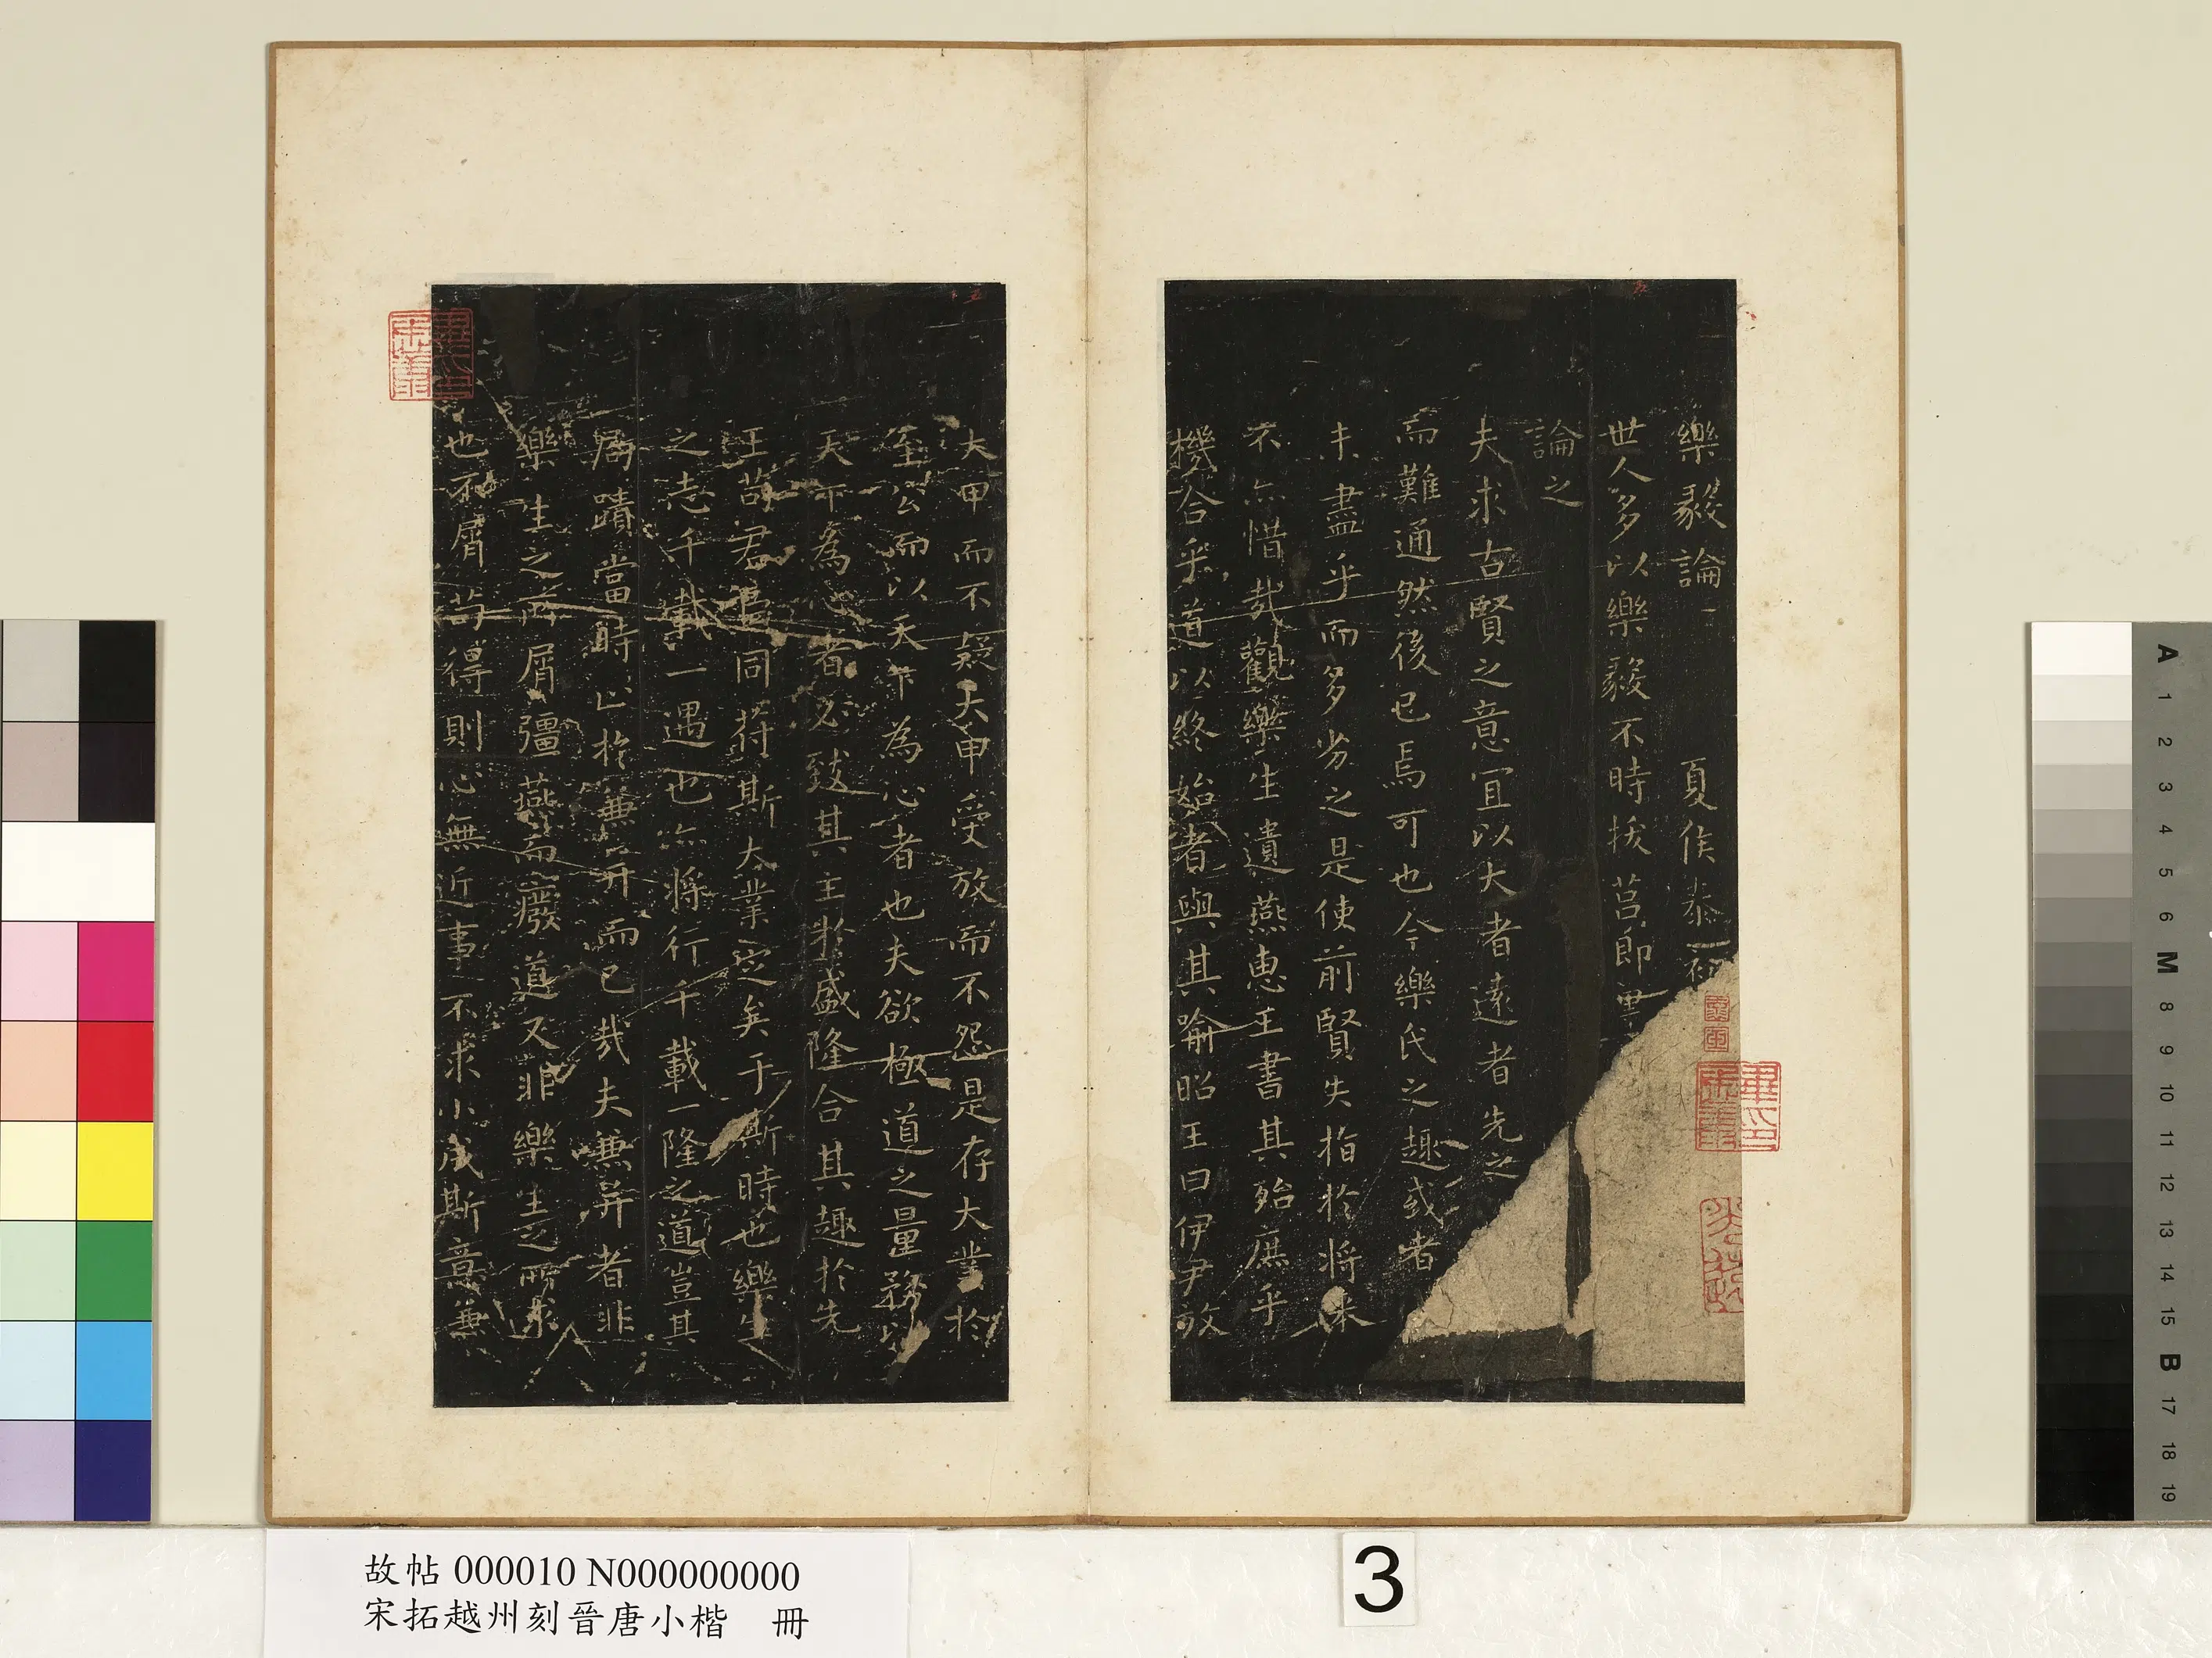 樂毅論
夏侯泰初
世人多以樂毅不時拔莒即墨
論之
夫求古賢之意宜以大者遠者先之
而難通然後已焉可也今樂氏之趣或者
未盡乎而多劣之是使前賢失指於將来
不亦惜哉觀樂生遺燕惠王書其殆庶乎
機合乎道以終始者與其喻昭王曰伊尹放
大甲而不疑大甲受放而不怨是存大業於
至公而以天下為心者也夫欲極道之量務以
天下為心者必致其主於盛隆合其趣於先
王苟君臣同符斯大業定矣于斯時也樂生
之志千載一遇也亦將行千載一隆之道豈其
局蹟當時止於兼并而已哉夫兼并者非
樂生之所屑彊燕而廢道又非樂生之所求
也不屑苟得則心無近事不求小成斯意兼
故帖 000010 N000000000
宋拓越州刻晉唐小楷 冊
3
A
1
2
3
4
5
6
M
8
9
10
11
12
13
14
15
B
17
18
19